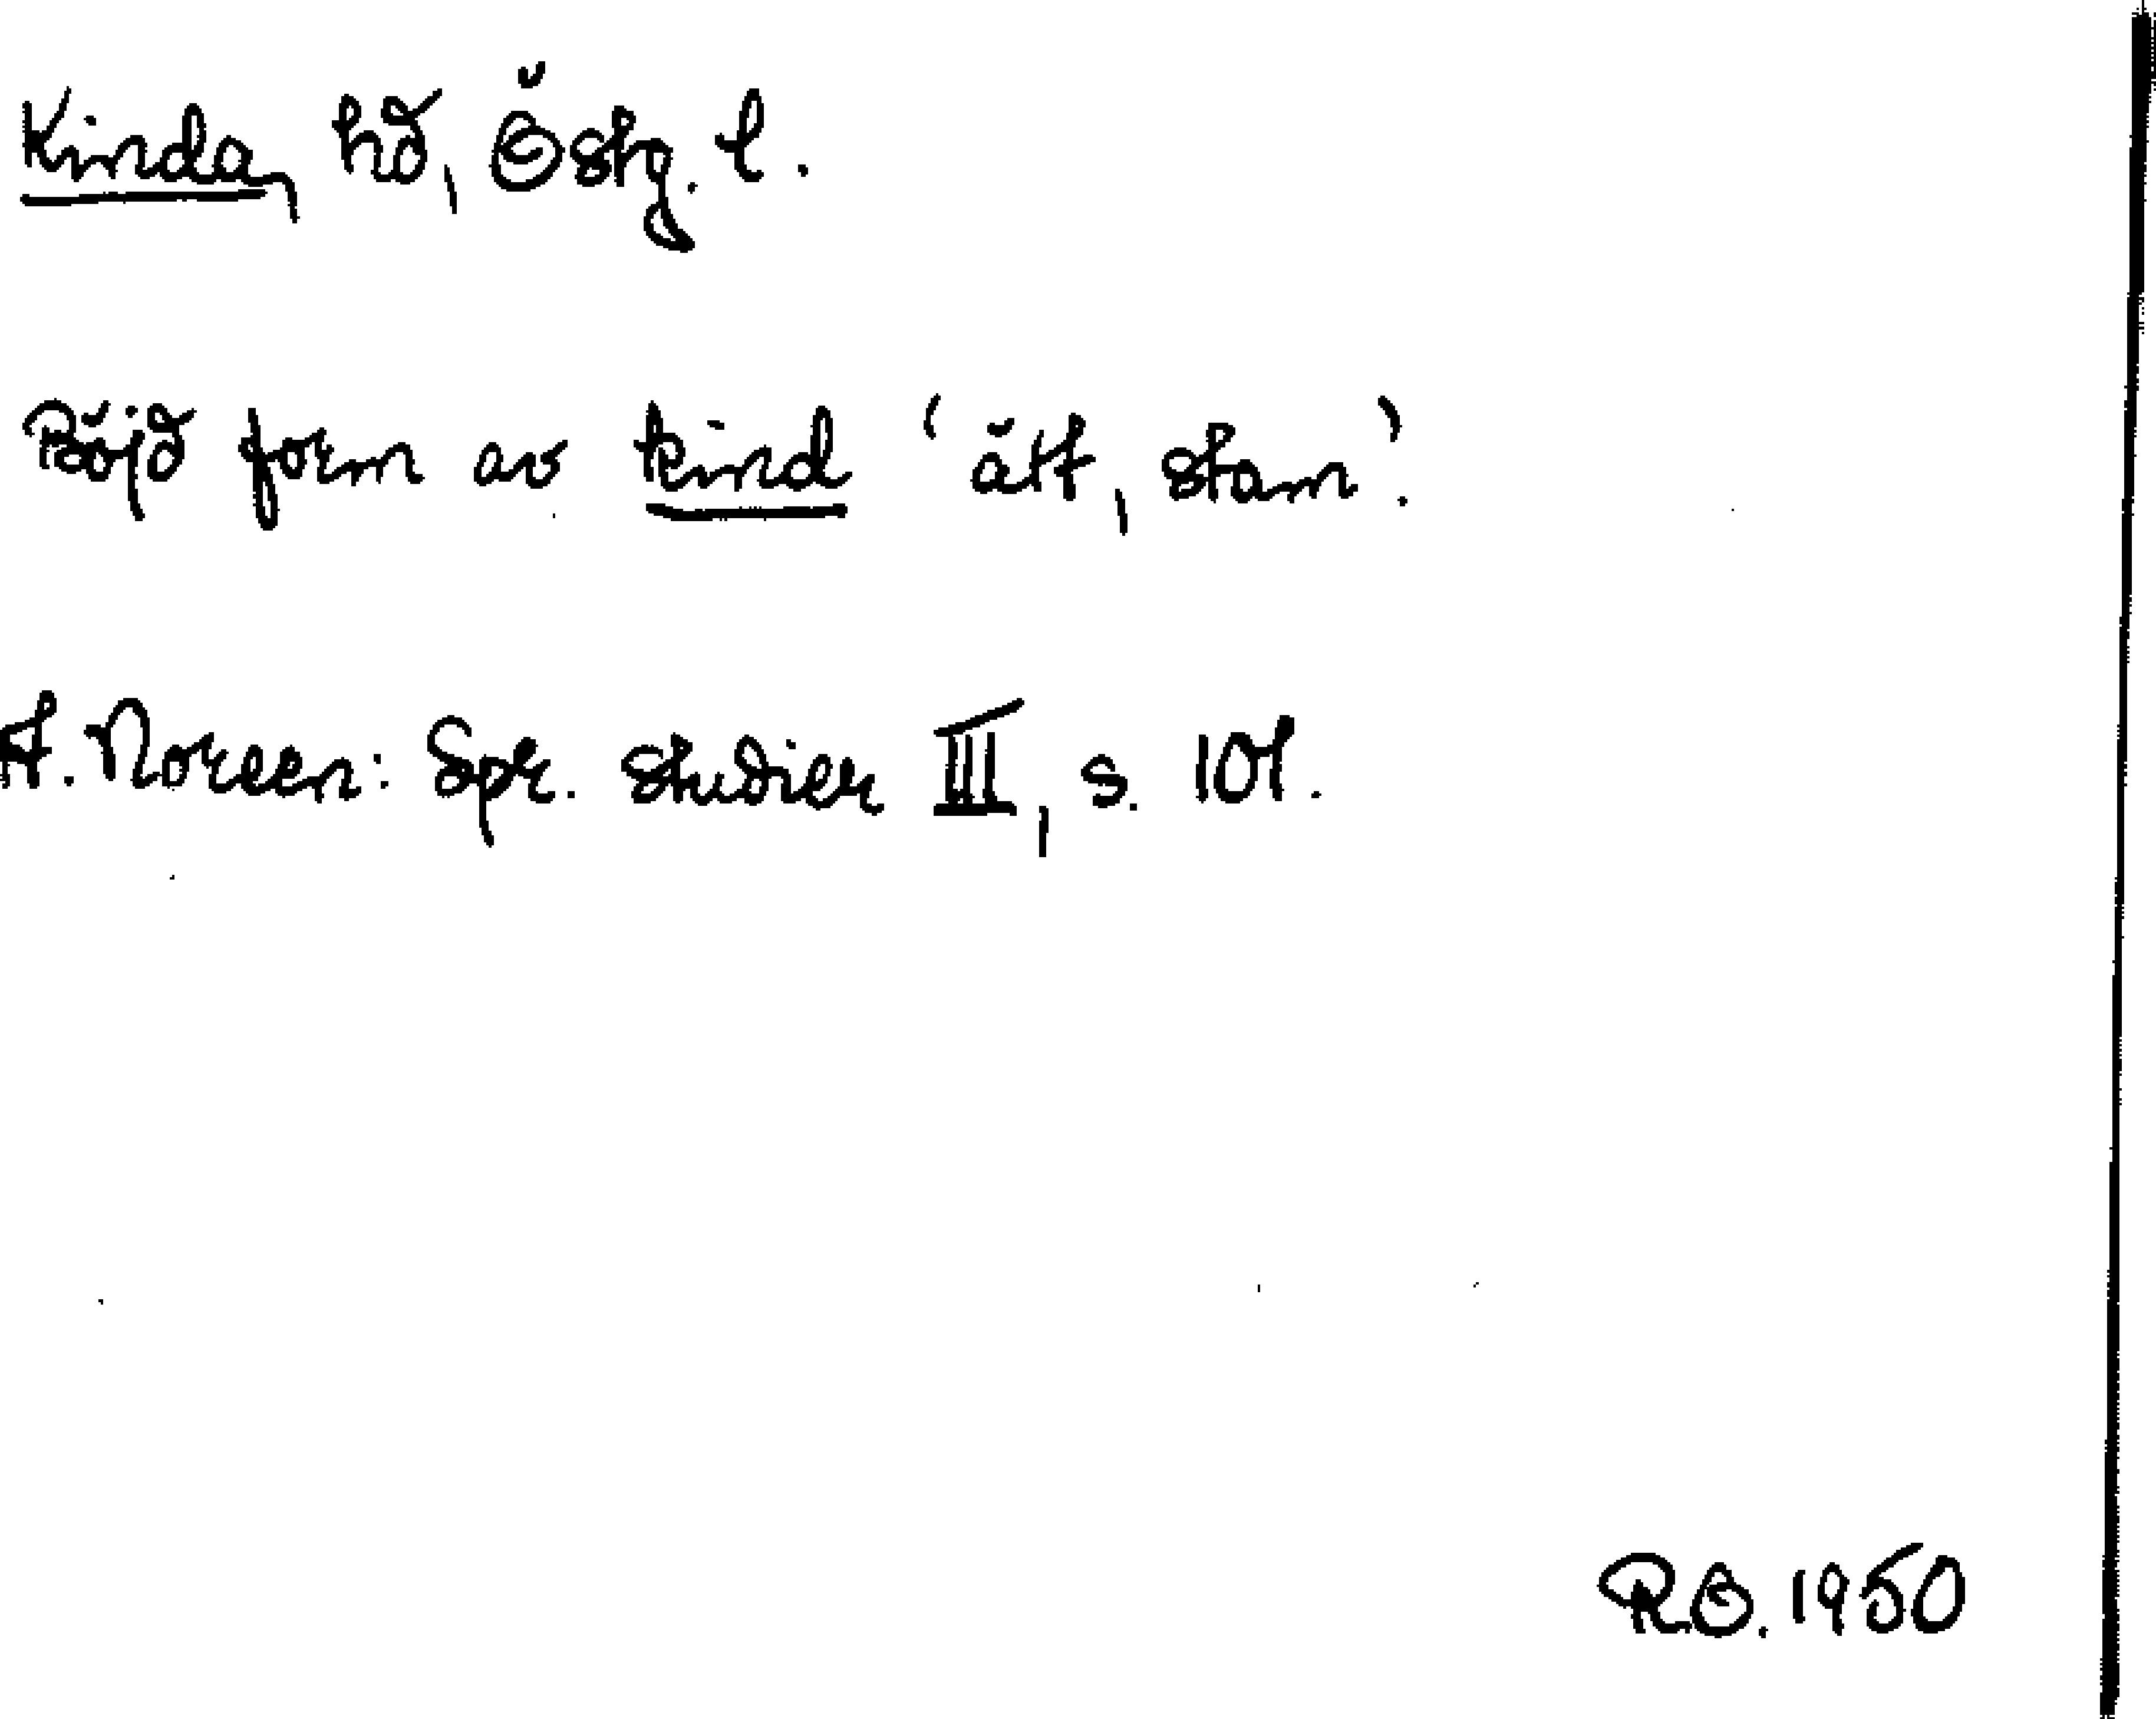 Kinda, hd, Östg. l.
Böjd form av kind ‘ätt, stam’.
A. Noreen: Spr. studier III, s. 101.
RO. 1950